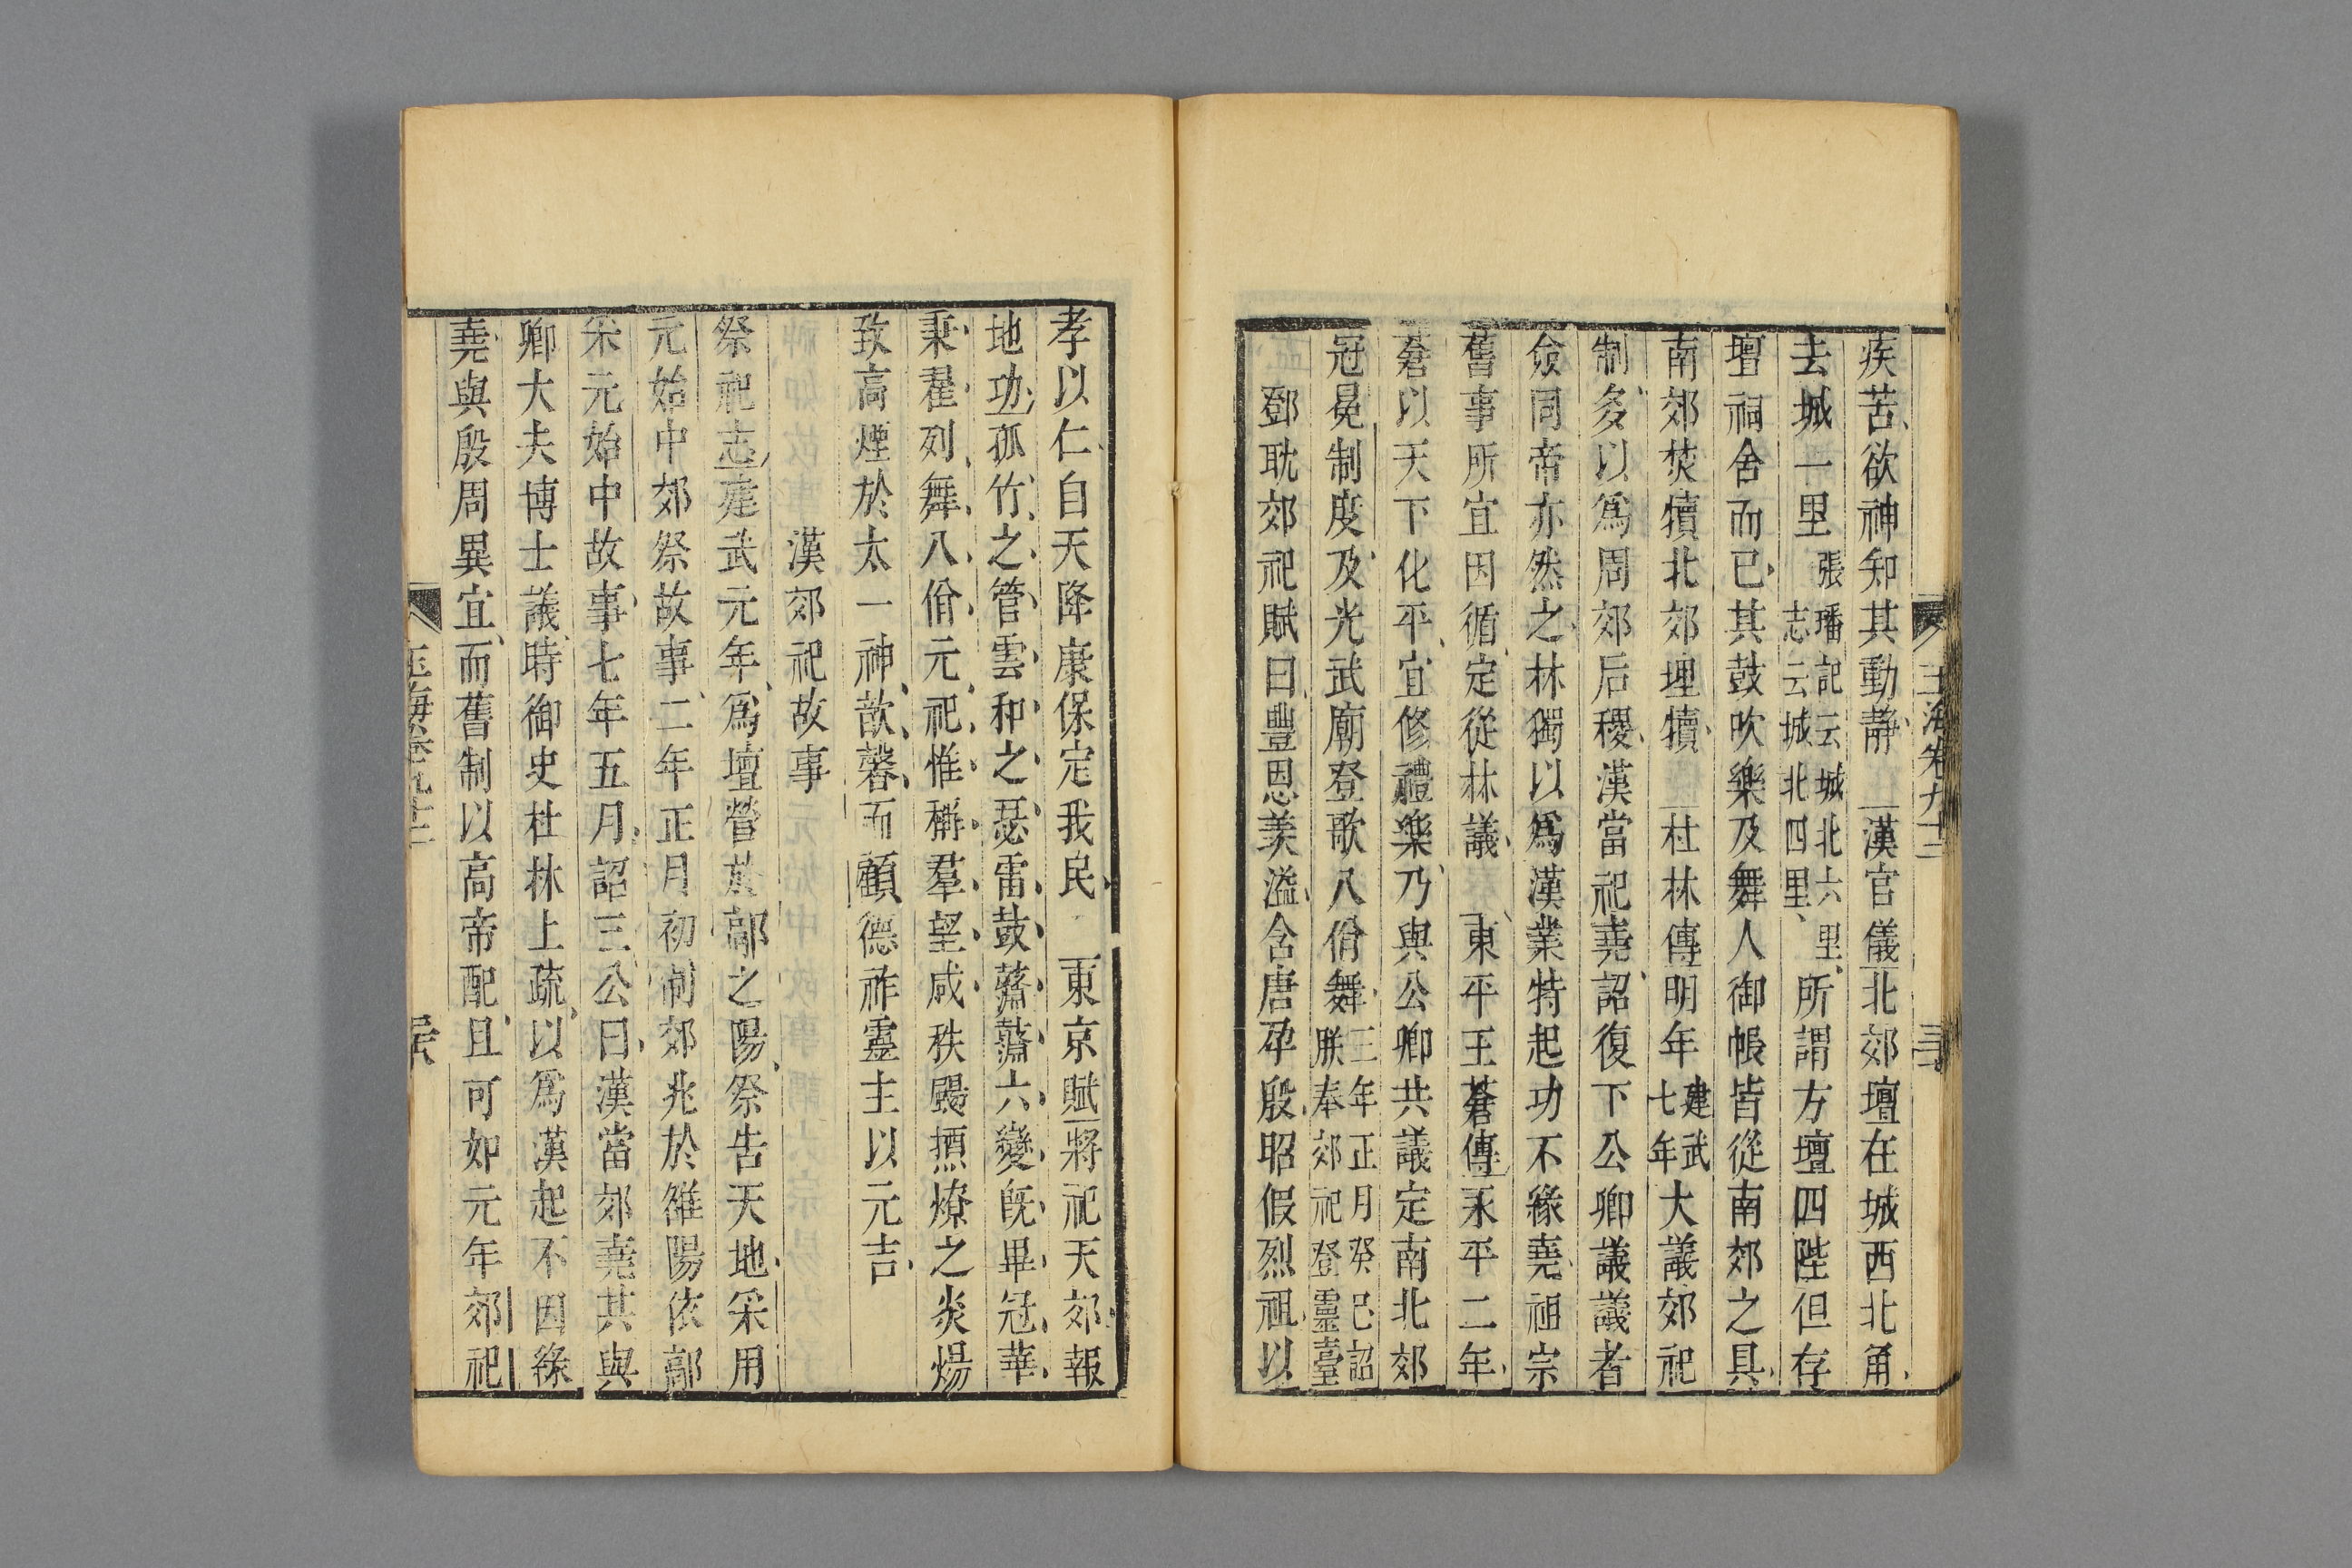 玉海卷九十三
三十
疾苦欲神知其動靜 漢官儀北郊壇在城西北角
去城一里張璠記云城北六里志云城北四里所謂方壇四陛但存
壇祠舍而已其鼓吹樂及舞人御帳皆從南郊之具
南郊焚犢北郊埋犢 杜林傳明年建武七年大議郊祀
制多以為周郊后稷漢當祀堯詔復下公卿議議者
僉同帝亦然之林獨以為漢業特起功不緣堯祖宗
舊事所宜因循定從林議 東平王蒼傳永平二年
蒼以天下化平宜修禮樂乃與公卿共議定南北郊
冠冕制度及光武廟登歌八佾舞三年正月癸巳詔朕奉郊祀登靈臺
鄧耽郊祀賦曰豐恩羨溢含唐孕殷昭假烈祖以
孝以仁自天降康保定我民 東京賦將祀天郊報
地功孤竹之管雲和之瑟雷鼓鼝鼝六變旣畢冠華
秉翟列舞八佾元祀惟稱羣望咸秩颺槱燎之炎煬
致高煙於太一神歆馨而顧德祚靈主以元吉
漢郊祀故事
祭祀志建武元年為壇營於鄗之陽祭告天地采用
元始中郊祭故事二年正月初制郊兆於雒陽依鄗
采元始中故事七年五月詔三公曰漢當郊堯其與
卿大夫博士議時御史杜林上疏以為漢起不因緣
堯與殷周異宜而舊制以高帝配且可如元年郊祀
玉海卷九十三